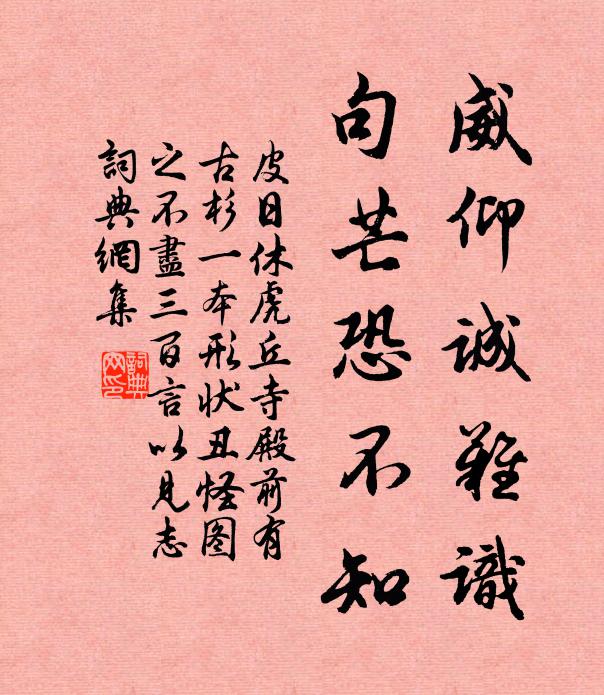 威仰誠難識
句芒恐不知
皮日休虎丘寺殿前有
古杉一本形状丑怪图
之不盡三百言以見志
詞典網集
詞典
网印